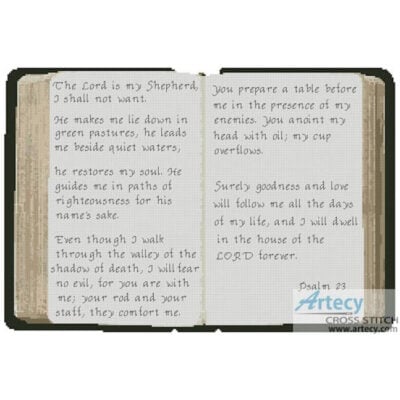 The Lord is my Shepherd,
I shall not want.
He makes me lie down in
green pastures, he leads
me beside quiet waters,
he restores my soul. He
guides me in paths of
righteousness for his
name's sake.
Even though I walk
through the valley of the
shadow of death, I will fear
no evil, for you are with
me; your rod and your
staff, they comfort me.
You prepare a table before
me in the presence of my
enemies. You anoint my
head with oil; my cup
overflows.
Surely goodness and love
will follow me all the days
of my life, and I will dwell
in the house of the
LORD forever.
Psalm 23
Artecy
CROSS STITCH
www.artecy.com